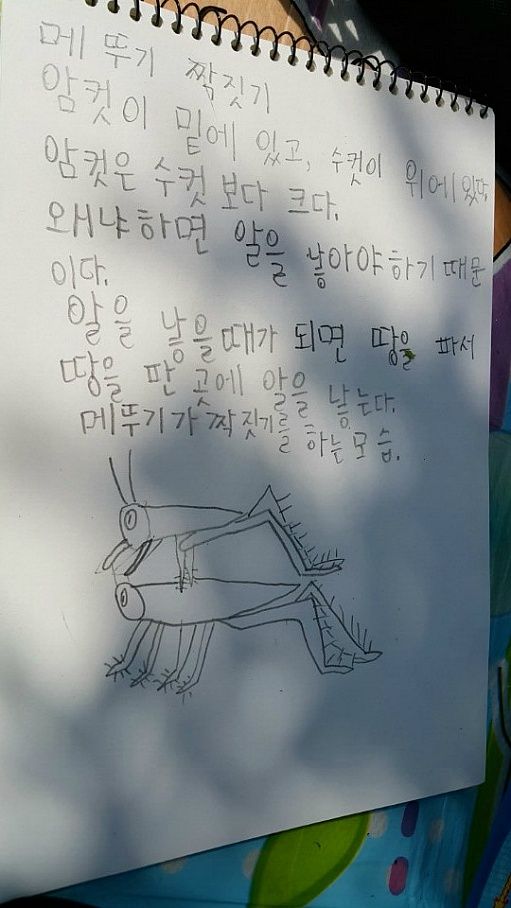 메뚜기 짝짓기
암컷이 밑에 있고, 수컷이 위에 있다.
암컷은 수컷 보다 크다.
왜냐하면 알을 낳아야하기 때문
이다.
알을 낳을때가 되면 땅을 파서
땅을 판 곳에 알을 낳는다.
메뚜기가 짝짓기를 하는 모습.